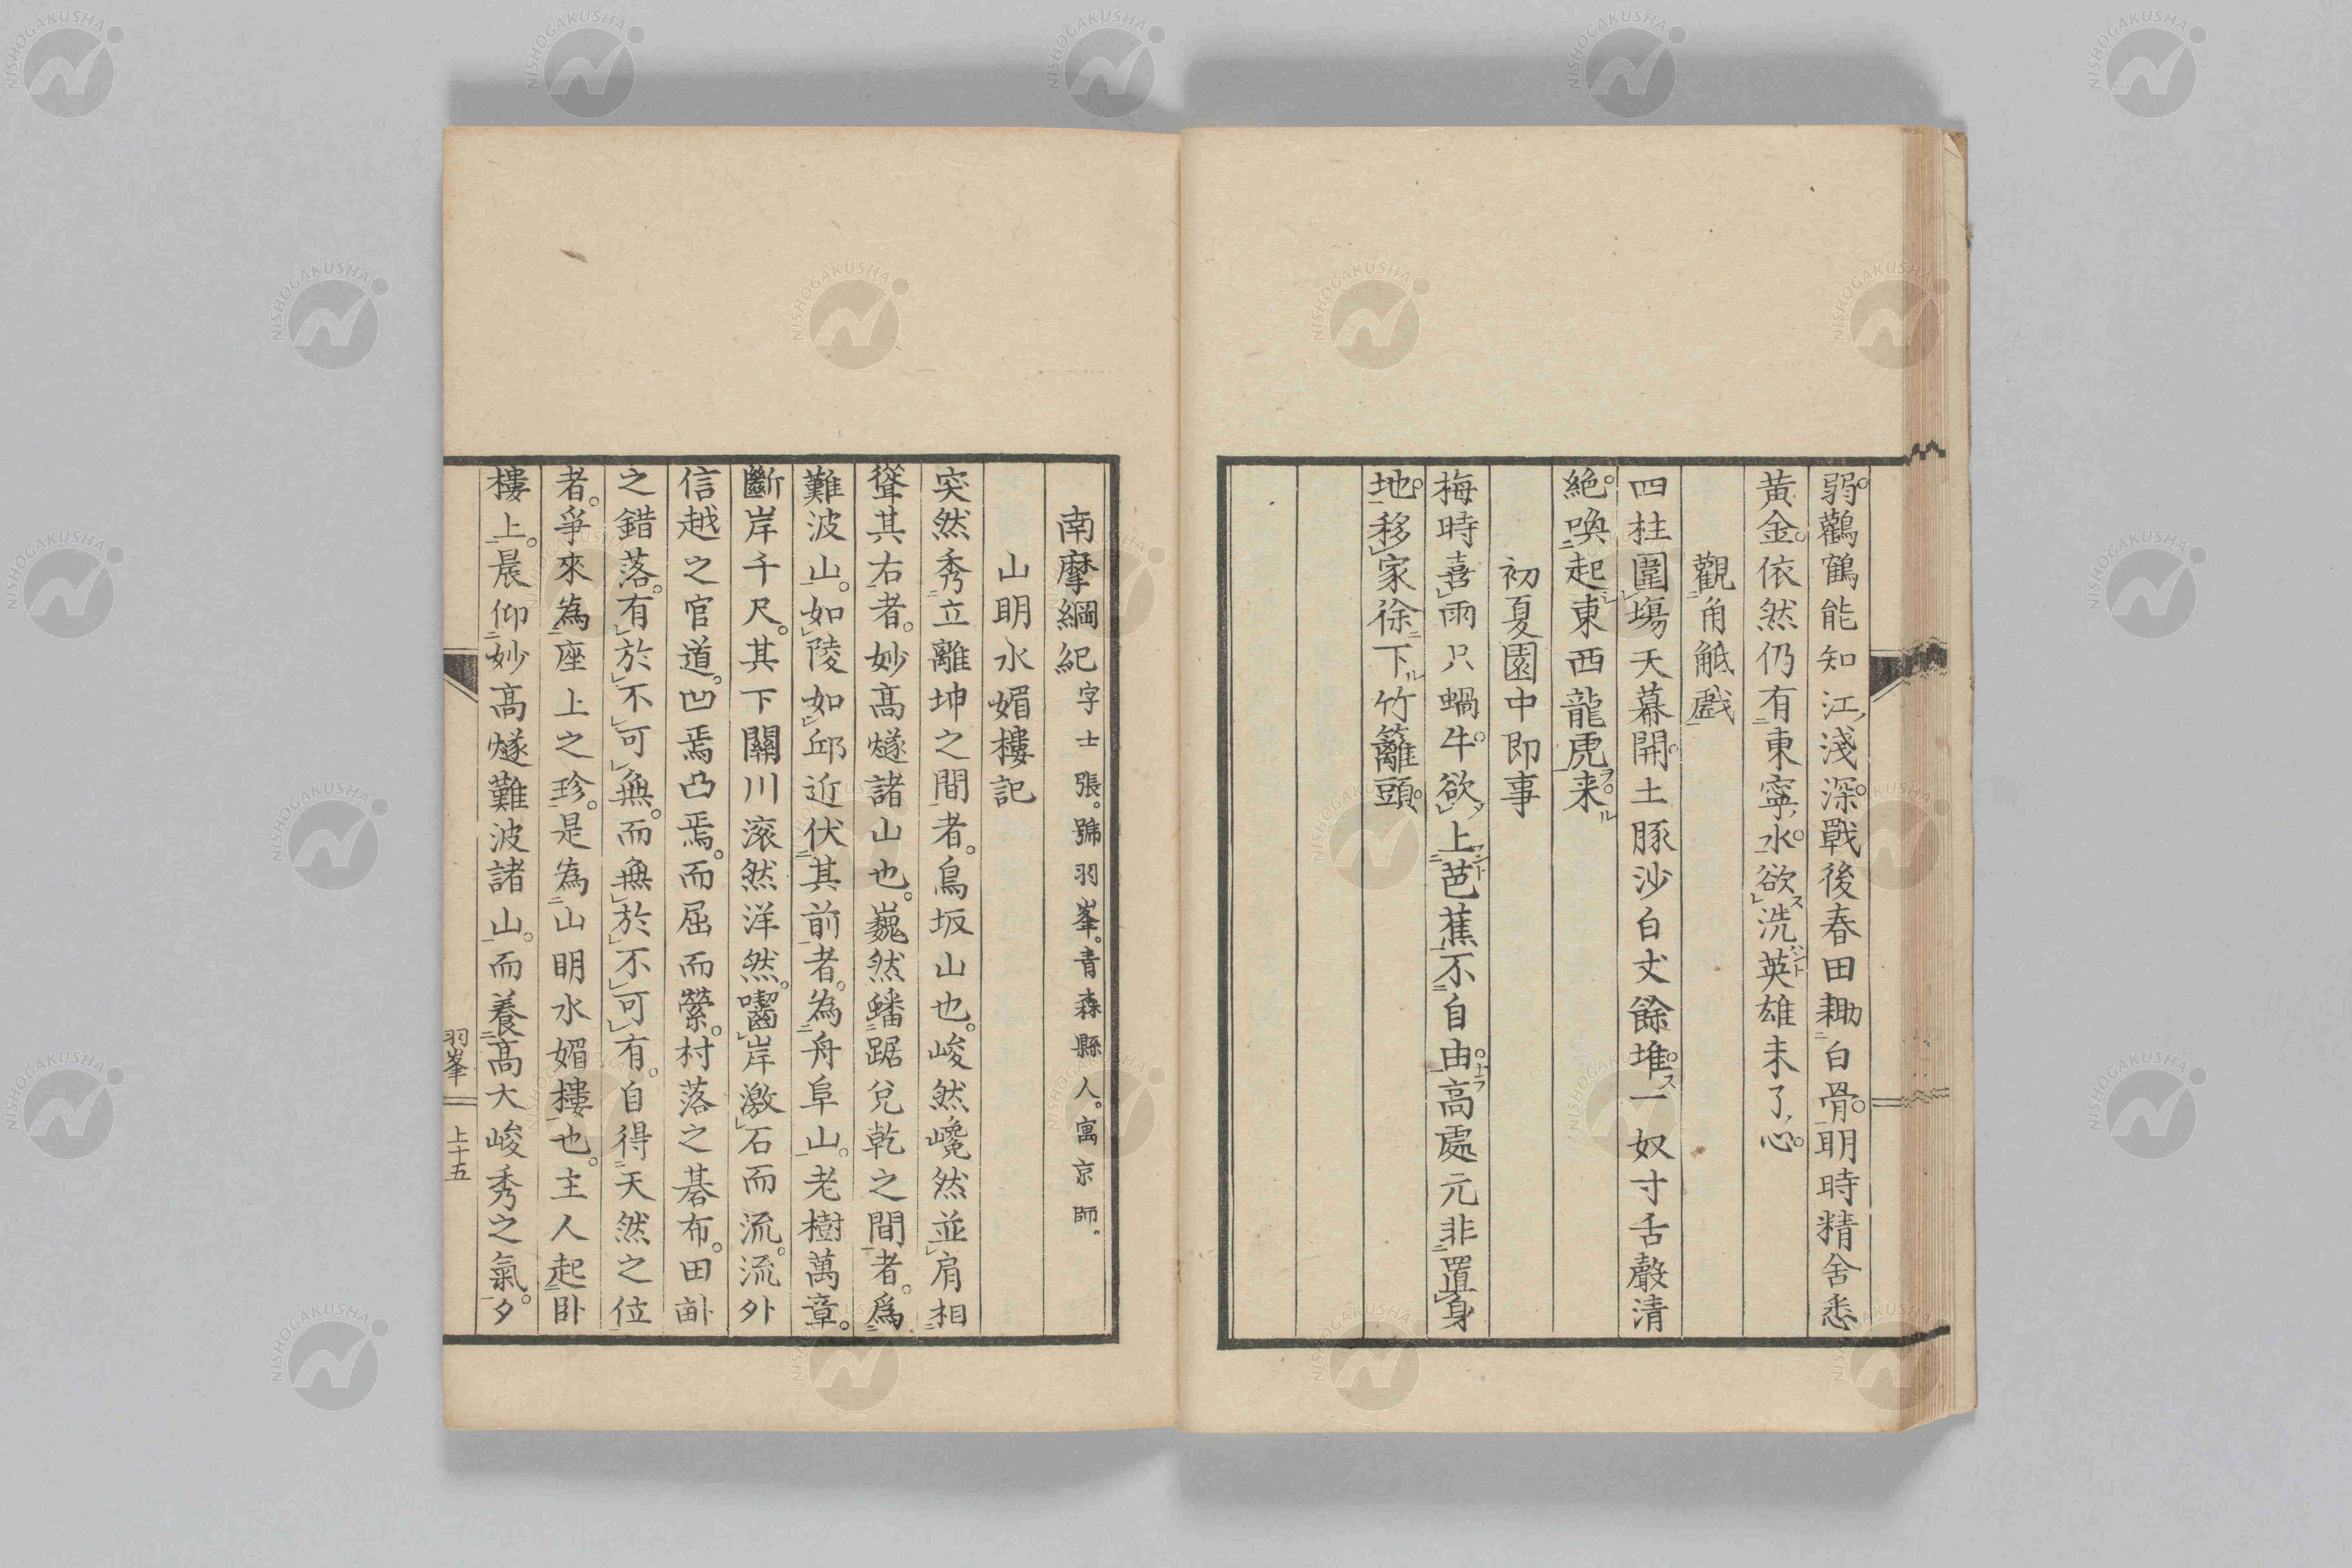 弱。鸛鶴能知江淺深。戰後春田耡白骨。明時精舍悉
黃金。依然仍有東寧水。欲洗英雄未了心。
觀角觝戲
四柱圍塲天幕開。土豚沙白丈餘堆。一奴寸舌聲清
絕。喚起東西龍虎来。
初夏園中即事
梅時喜雨只蝸牛。欲上芭蕉不自由。高處元非置身
地。移家徐下竹籬頭。
南摩綱紀字士張。號羽峯。青森縣人。寓京師。
山明水媚樓記
突然秀立離坤之間者。鳥坂山也。峻然巉然並肩相
聳其右者。妙高燧諸山也。巍然蟠踞兌乾之間者。爲
難波山。如陵如邱近伏其前者。為舟阜山。老樹萬章。
斷岸千尺。其下關川滚然洋然。囓岸激石而流。流外
信越之官道。凹焉凸焉。而屈而縈。村落之碁布。田畝
之錯落。有於不可無。而無於不可有。自得天然之位
者。爭來為座上之珍。是為山明水媚樓也。主人起臥
樓上。晨仰妙高燧難波諸山。而養高大峻秀之氣。夕
羽峯 上十五
NISHOGAKUSHA